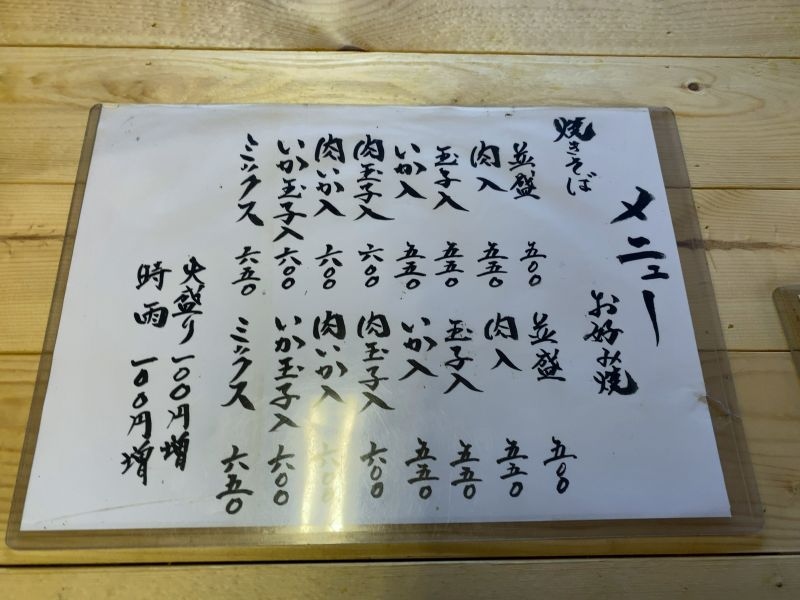 メニュー
焼きそば
並盛 五〇〇
肉入 五五〇
玉子入 五五〇
いか入 五五〇
肉玉子入 六〇〇
肉いか入 六〇〇
いか玉子入 六〇〇
ミックス 六五〇
お好み焼
並盛 五〇〇
肉入 五五〇
玉子入 五五〇
いか入 五五〇
肉玉子入 六〇〇
肉いか入 六〇〇
いか玉子入 六〇〇
ミックス 六五〇
大盛り 一〇〇円増
時雨 一〇〇円増